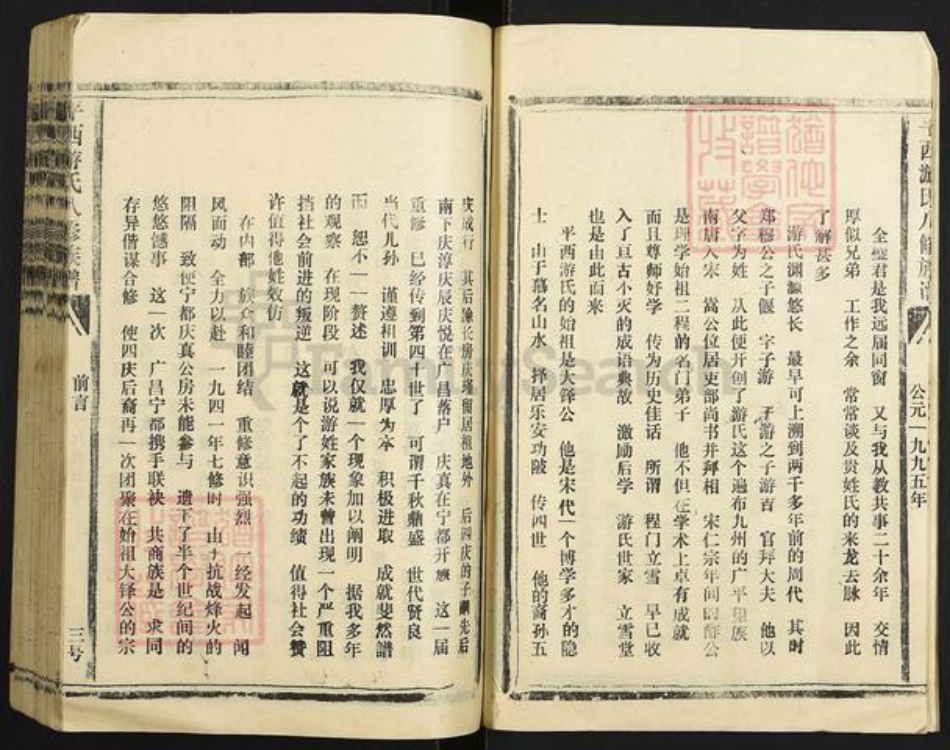 平西游氏八修族谱
公元一九九五年
全璧君是我远届同窗 又与我从教共事二十余年 交情
厚似兄弟 工作之余 常常谈及贵姓氏的来龙去脉 因此
了解甚多
游氏渊源悠长 最早可上溯到两千多年前的周代 其时
郑穆公之子偃 字子游 子游之子游吉 官拜大夫 他以
父字为姓 从此便开创了游氏这个遍布九州的广平望族
南唐入宋 嵩公位居吏部尚书并拜相 宋仁宗年间的酢公
是理学始祖二程的名门弟子 他不但在学术上卓有成就
而且尊师好学 传为历史佳话 所谓 程门立雪 早已收
入了亘古不灭的成语典故 激励后学 游氏世家 立雪堂
也是由此而来
平西游氏的始祖是大锋公 他是宋代一个博学多才的隐
士 由于慕名山水 择居乐安功陂 传四世 他的裔孙五
庆成行 其后除长房庆瑾留居祖地外 后四庆的子嗣先后
南下庆淳庆辰庆悦在广昌落户 庆真在宁都开族 这一届
重修 已经传到第四十世了 可谓千秋鼎盛 世代贤良
当代儿孙 谨遵祖训 忠厚为本 积极进取 成就斐然谱
而 恕不一一赘述 我仅就一个现象加以阐明 据我多年
的观察 在现阶段 可以说游姓家族未曾出现一个严重阻
挡社会前进的叛逆 这就是个了不起的功绩 值得社会赞
许值得他姓效仿
在内部 族众和睦团结 重修意识强烈 一经发起 闻
风而动 全力以赴 一九四一年七修时 由于抗战烽火的
阻隔 致使宁都庆真公房未能参与 遗下了半个世纪间的
悠悠憾事 这一次 广昌宁都携手联袂 共商族是 求同
存异偕谋合修 使四庆后裔再一次团聚在始祖大锋公的宗
平西游氏八修族谱
前言
三号
FamilySearch